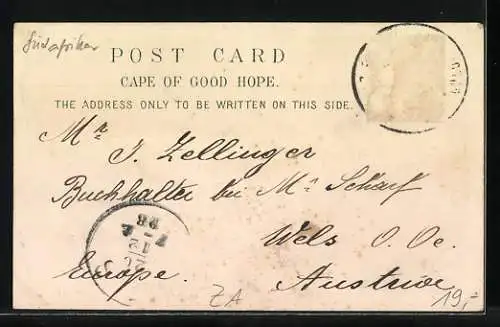 Südafrika
POST CARD
CAPE OF GOOD HOPE.
THE ADDRESS ONLY TO BE WRITTEN ON THIS SIDE.
Mr J. Zellinger
Buchhalter bei Mr Scharf
Wels O. Oe.
Europe. Austria
ZA
19,-